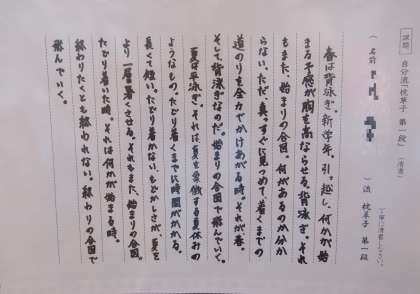 〔課題〕自分流「枕草子 第一段」（清書） 丁寧に清書しなさい。
〈 名前 〉流 枕草子 第一段
春は背泳ぎ。新学年、引っ越し、何かが始
まる予感が胸を高ならせる。背泳ぎ。それ
もまた、始まりの合図。何があるのか分か
らない、ただ、真っすぐに見つめて、着くまでの
道のりを全力でかけあがる時。それが春。
そして、背泳ぎなのだ。始まりの合図で飛んでいく。
夏は平泳ぎ。それは、夏を象徴する夏休みの
ようなもの。たどり着くまでに時間がかかる。
長くて短い。たどり着かない、もどかしさが、夏を
より一層暑くさせる。それもまた、始まりの合図。
たどり着いた時。それは何かが始まる時。
終わりたくとも終われない。終わりの合図で
飛んでいく。